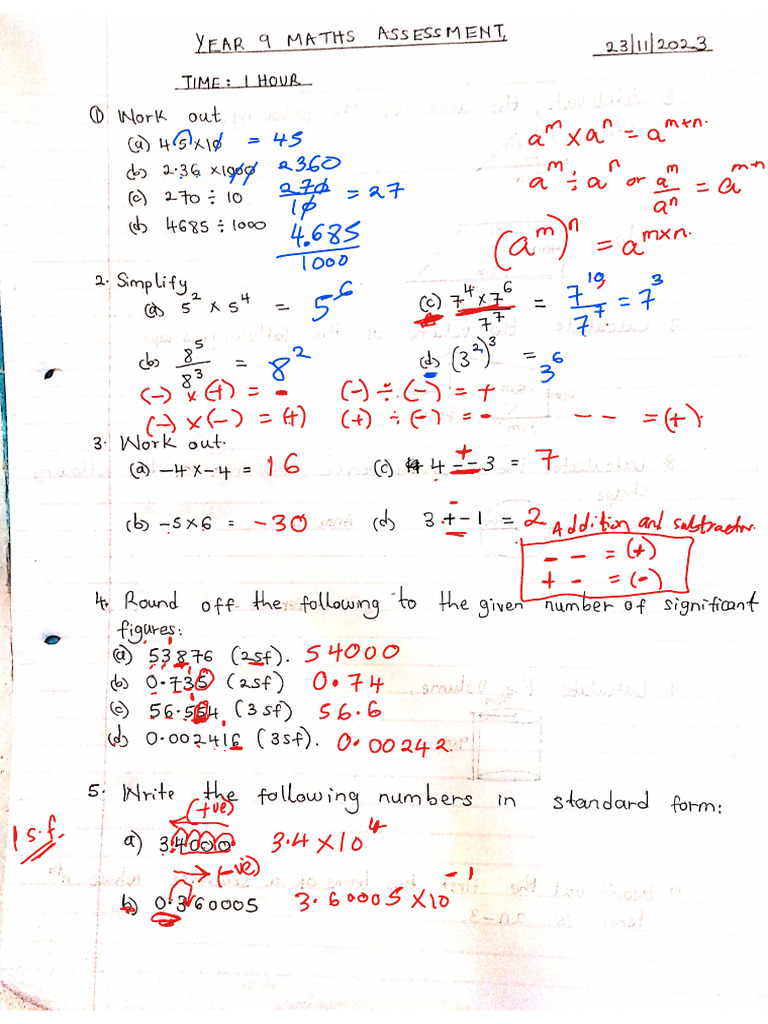 YEAR 9 MATHS ASSESSMENT.
23/11/2023
TIME: 1 HOUR
① Work out
(a) 45 × 10 = 45
(b) 2.36 × 1000 2360
(c) 270 ÷ 10 270/10 = 27
(d) 4685 ÷ 1000 4.685/1000
a^m × a^n = a^(m+n).
a^m ÷ a^n or a^m/a^n = a^(m-n)
(a^m)^n = a^(m×n).
2. Simplify
(a) 5^2 × 5^4 = 5^6 (c) 7^4 × 7^6 / 7^7 = 7^10/7^7 = 7^3
(b) 8^5/8^3 = 8^2 (d) (3^2)^3 = 3^6
(-) × (+) = - (-) ÷ (-) = +
(-) × (-) = (+) (+) ÷ (-) = - - - = (+).
3. Work out.
(a) -4 × -4 = 16 (c) 4 - - 3 = 7
+
(b) -5 × 6 = -30 (d) 3 + - 1 = 2 Addition and subtraction
-
- - = (+)
+ - = (-)
4. Round off the following to the given number of significant
figures:
(a) 53876 (2sf). 54000
(b) 0.735 (2sf) 0.74
(c) 56.554 (3sf) 56.6
(d) 0.002416 (3sf). 0.00242
5. Write the following numbers in standard form:
(+ve)
1 s.f.
a) 34000 3.4 × 10^4
(-ve)
b) 0.360005 3.60005 × 10^-1